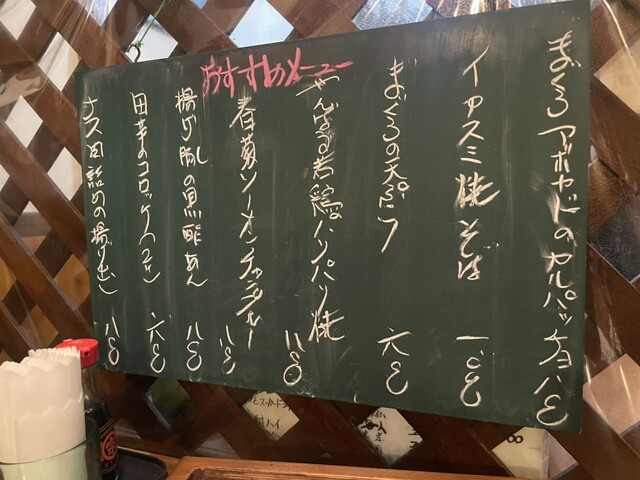 おすすめメニュー
まぐろアボカドのカルパッチョ 八〇
イカスミ焼そば 一〇〇
まぐろの天ぷら 六〇
やんばる若鶏パリパリ焼 八〇
春菊ソーメンチャンプルー 八〇
揚げ豚の黒酢あん 八〇
田芋のコロッケ(2ケ) 六〇
ナス肉詰めの揚げ出し 八〇